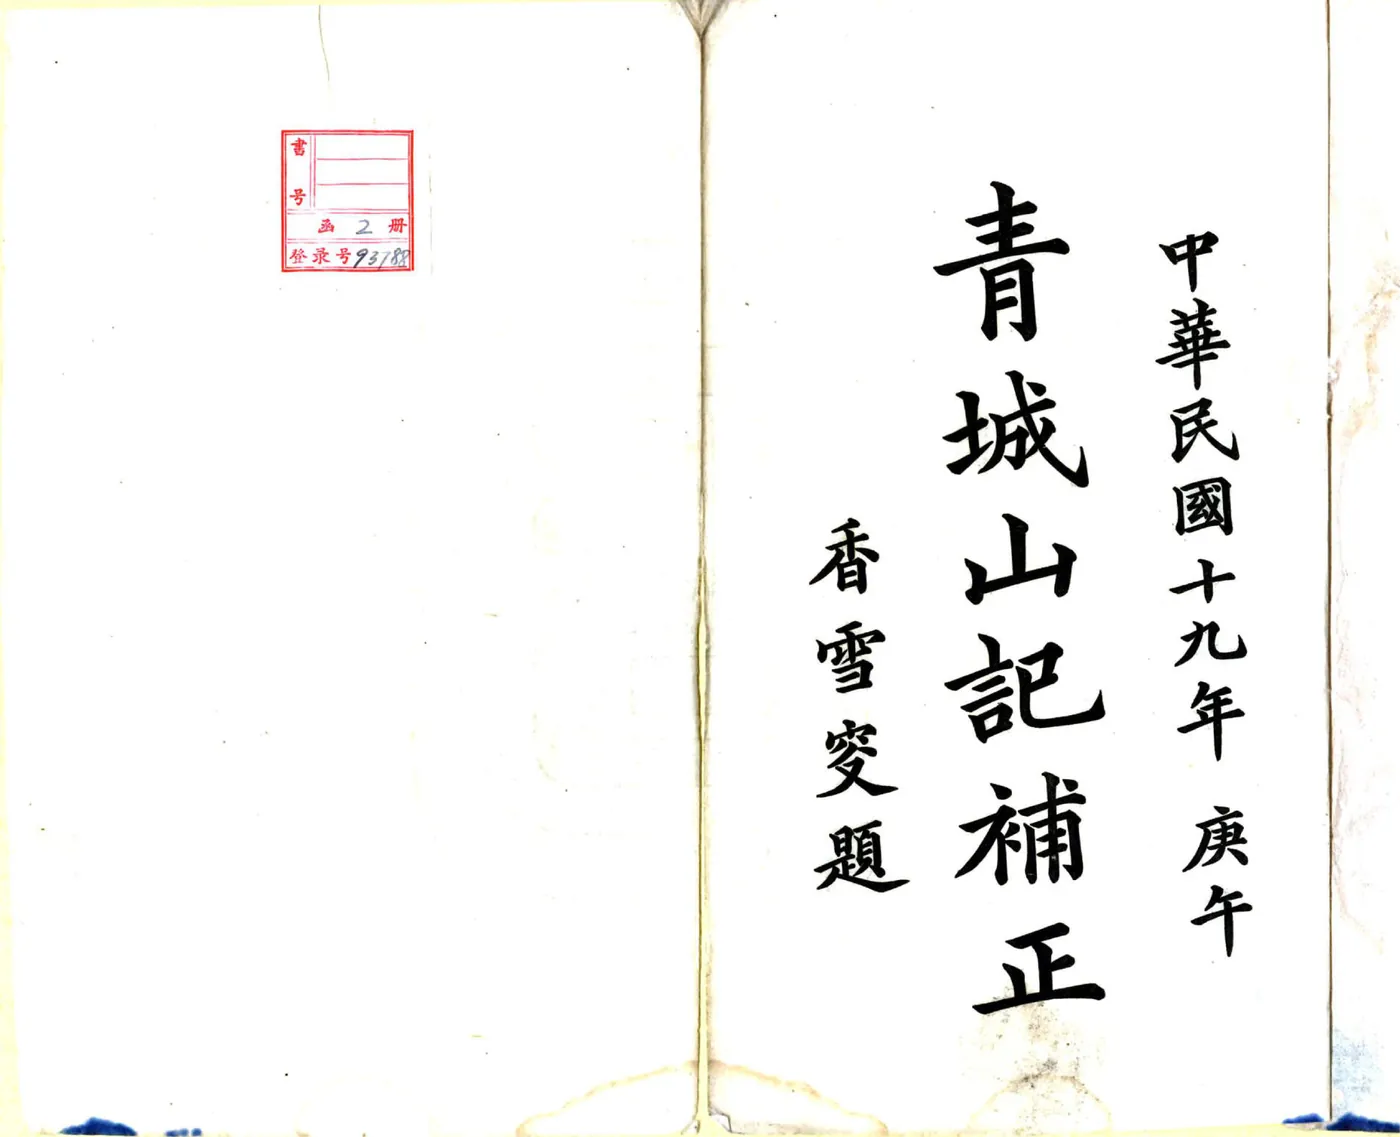 中華民國十九年 庚午
青城山記補正
香雪㝔題
書号
函 2 册
登录号93788